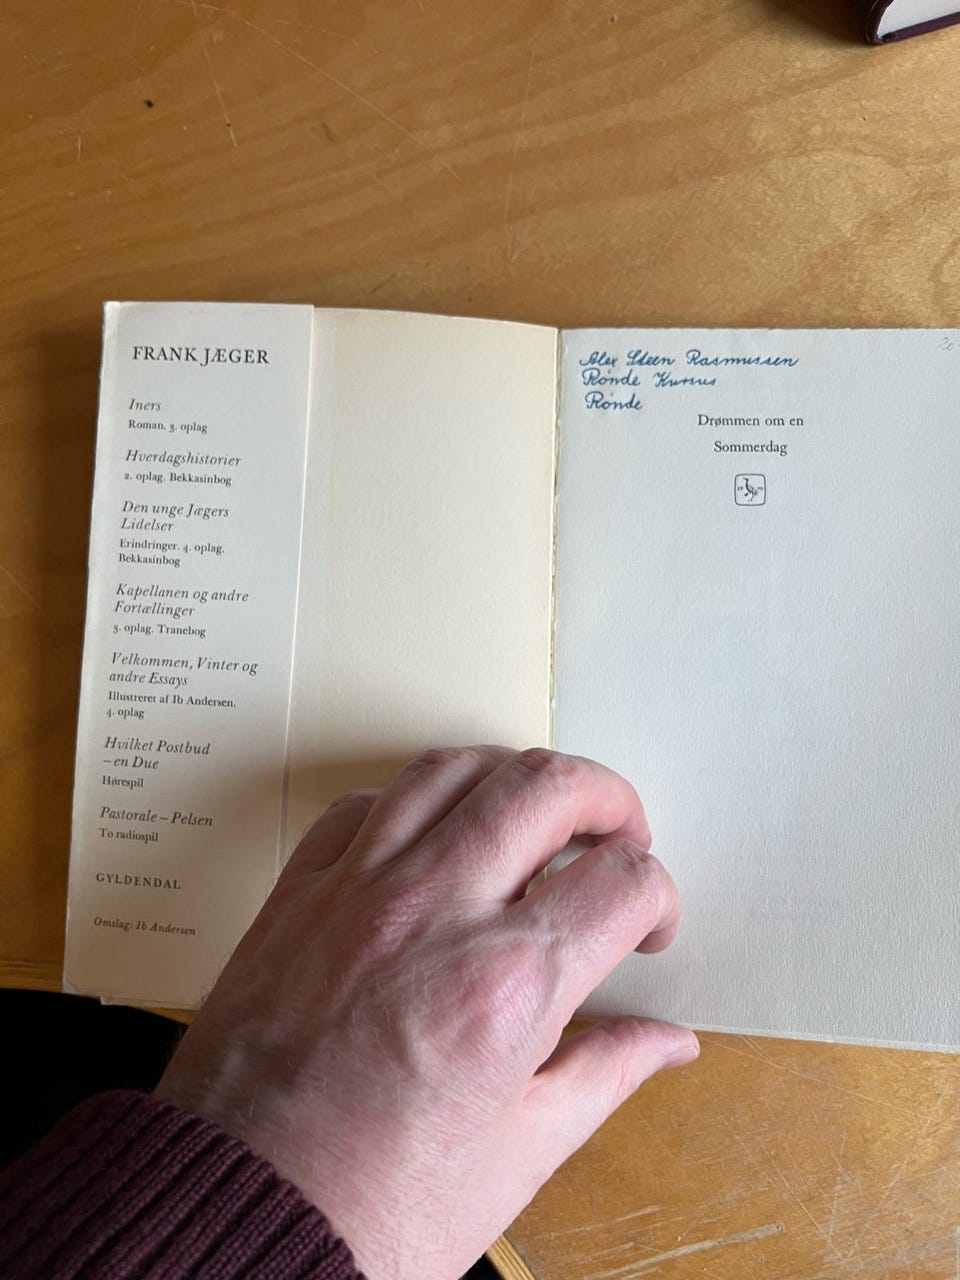 FRANK JÆGER
Iners
Roman. 3. oplag
Hverdagshistorier
2. oplag. Bekkasinbog
Den unge Jægers
Lidelser
Erindringer. 4. oplag.
Bekkasinbog
Kapellanen og andre
Fortællinger
3. oplag. Tranebog
Velkommen, Vinter og
andre Essays
Illustreret af Ib Andersen.
4. oplag
Hvilket Postbud
– en Due
Hørespil
Pastorale – Pelsen
To radiospil
GYLDENDAL
Omslag: Ib Andersen
Alex Steen Rasmussen
Rønde Kursus
Rønde
20
Drømmen om en
Sommerdag